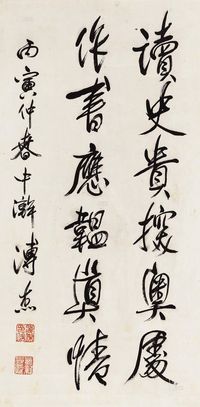 讀史貴探奧
作書應韞真情
丙寅仲春中澣溥杰